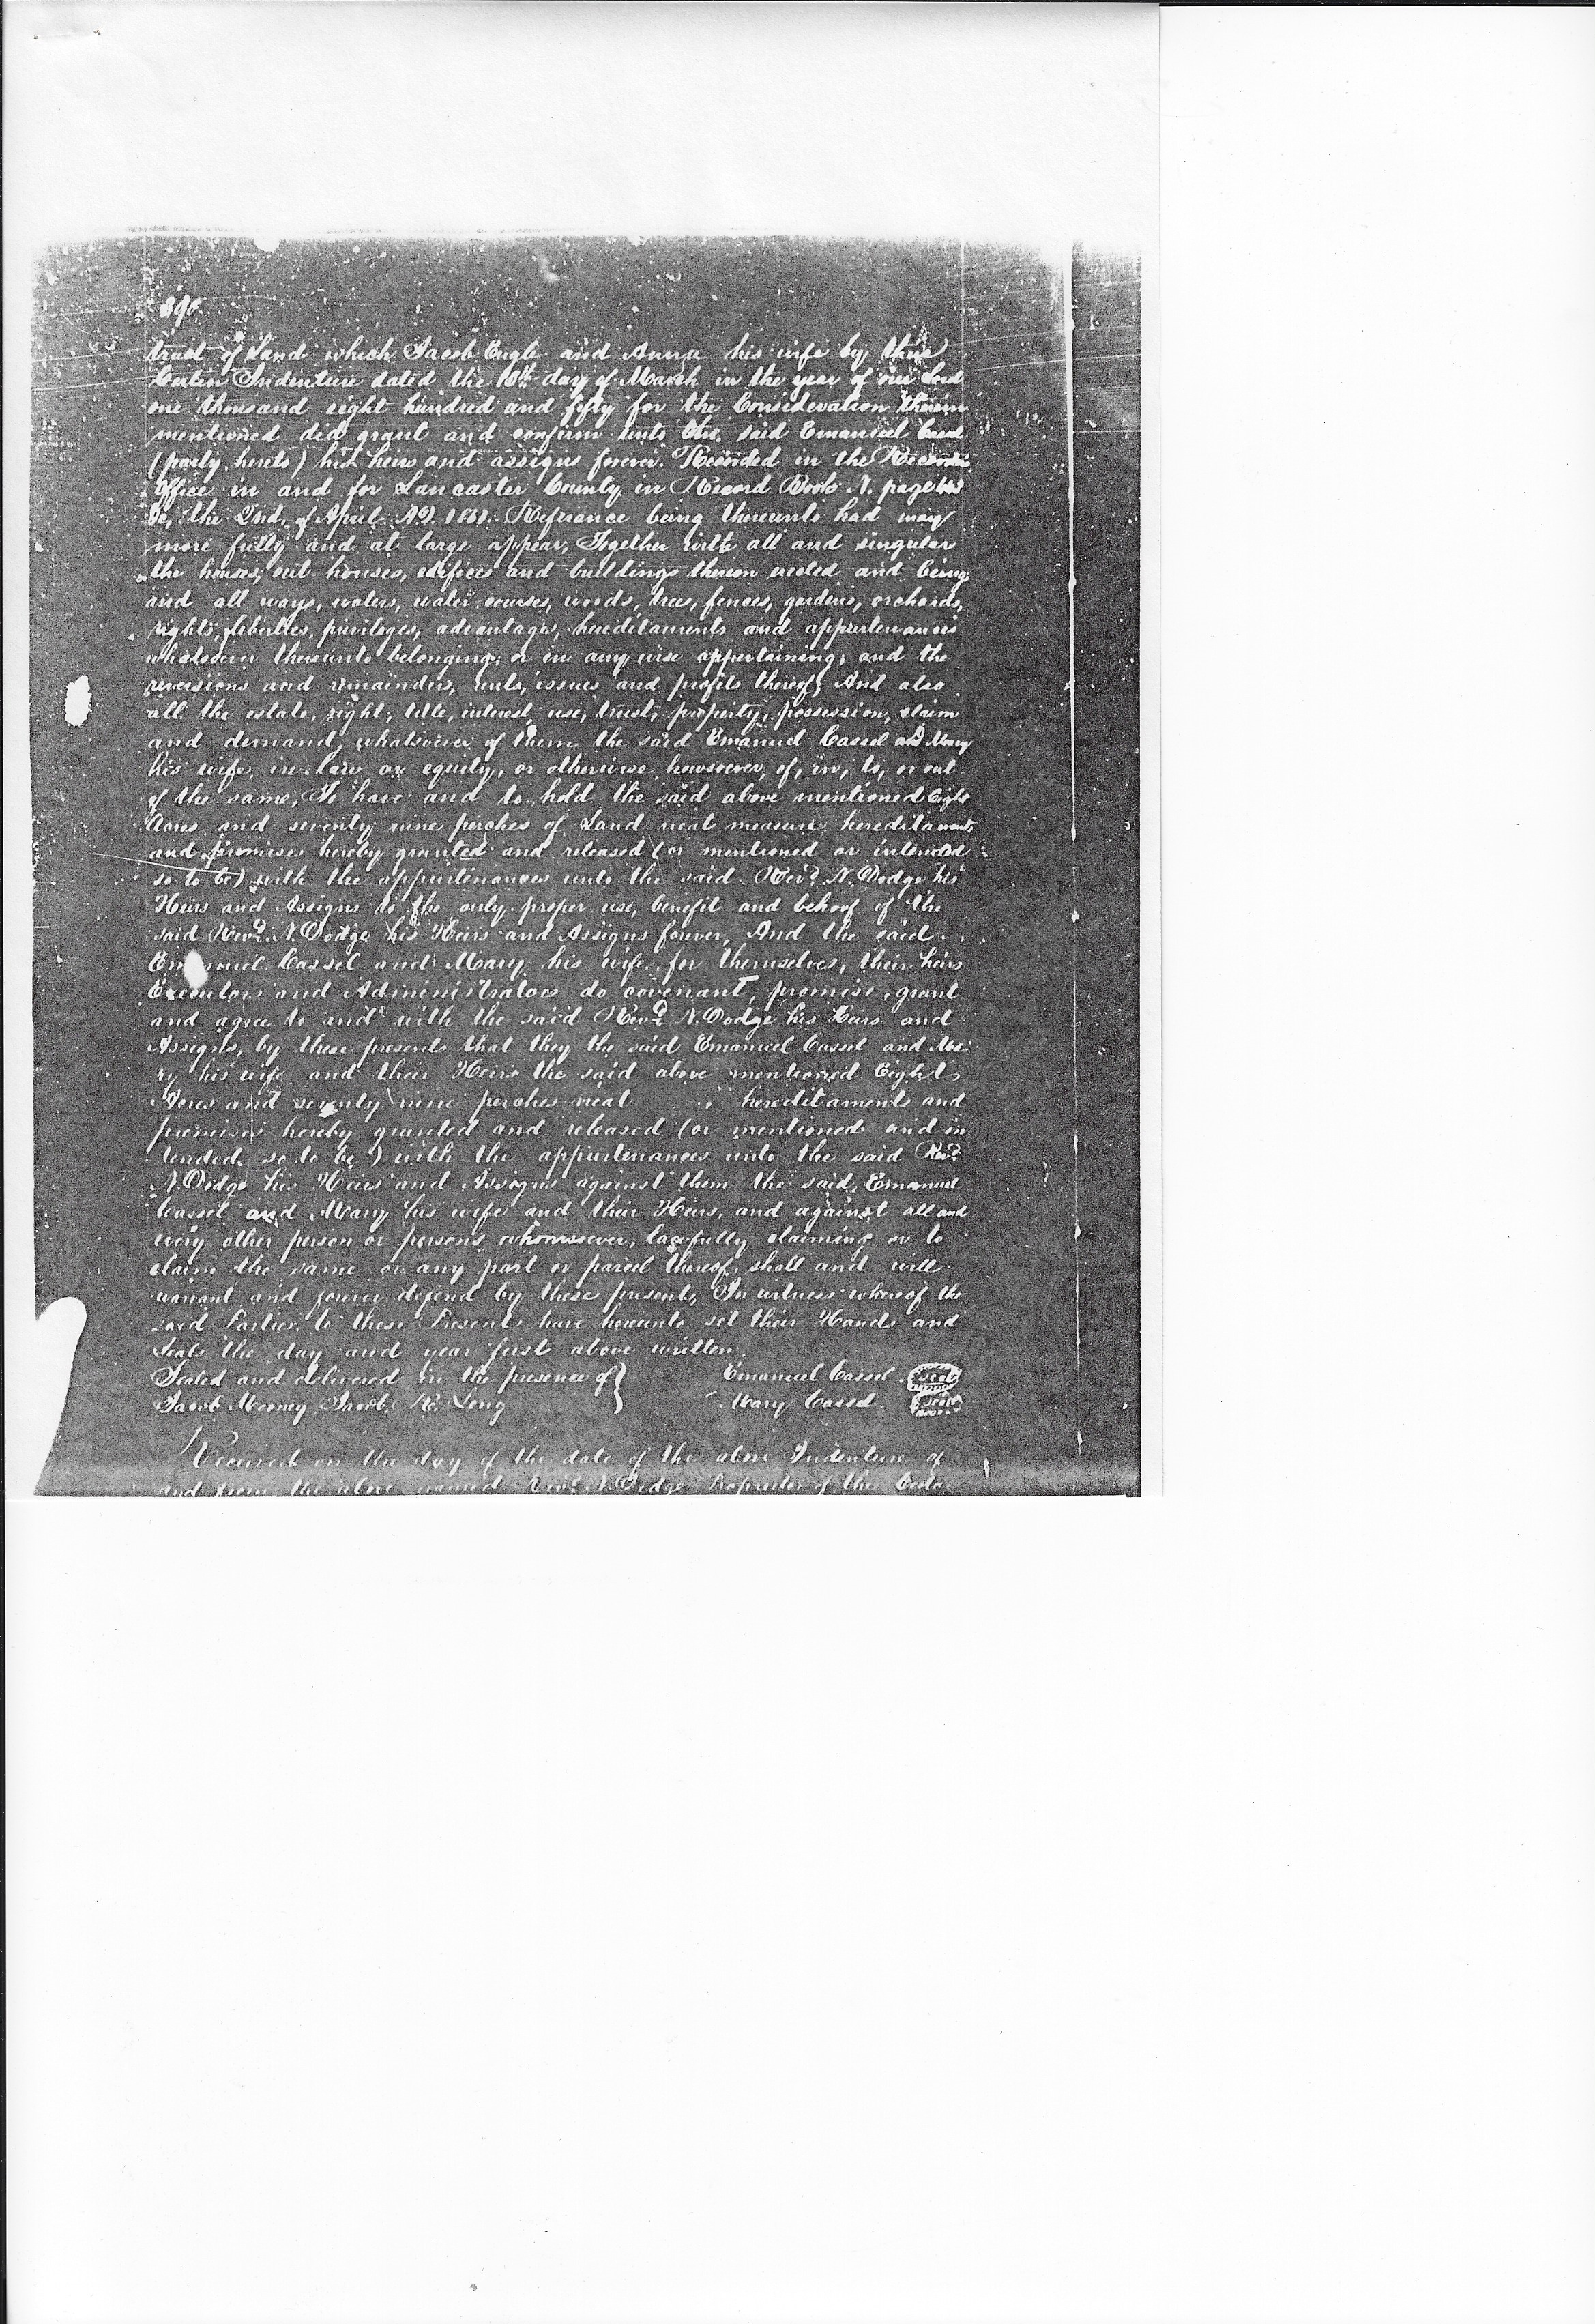 tract of Land which Jacob Engle and Anna his wife by their
Certen Indenture dated the 18th day of March in the year of our Lord
one thousand eight hundred and fifty for the Consideration therein
mentioned did grant and confirm unto the said Emanuel Cassel
(party hereto) his heirs and assigns forever. Recorded in the Recorders
Office in and for Lancaster County in Record Book N. page
&c, the 2nd, of April A.D. 1851. Refrance being thereunto had may
more fully and at large appear, Together with all and singular
the houses, out houses, edifices and buildings thereon erected and being
and all ways, waters, water courses, woods, trees, fences, gardens, orchards,
rights, liberties, privileges, advantages, hereditaments and appurtenances
whatsoever thereunto belonging, or in any wise appertaining, and the
reversions and remainders, rents, issues and profits thereof, And also
all the estate, right, title, interest, use, trust, property, possession, claim
and demand, whatsoever of them the said Emanuel Cassel and Mary
his wife, in law or equity, or otherwise howsoever, of, in, to, or out
of the same, To have and to hold the said above mentioned Eight
Acres and seventy nine perches of Land neat measure hereditaments
and premises hereby granted and released (or mentioned or intended
so to be) with the appurtenances unto the said Revd. N. Dodge his
Heirs and Assigns to the only proper use, benefit and behoof of the
said Revd. N. Dodge his Heirs and Assigns forever, And the said
Emanuel Cassel and Mary his wife for themselves, their heirs
Executors and Administrators do covenant, promise, grant
and agree to and with the said Revd. N. Dodge his Heirs and
Assigns, by these presents that they the said Emanuel Cassel and Ma-
ry his wife and their Heirs the said above mentioned Eight
Acres and seventy nine perches neat hereditaments and
premises hereby granted and released (or mentioned and in
tended so to be) with the appurtenances unto the said Revd.
N. Dodge his Heirs and Assigns against them the said Emanuel
Cassel and Mary his wife and their Heirs, and against all and
every other person or persons whomsoever, lawfully claiming or to
claim the same or any part or parcel thereof, shall and will
warrant and forever defend by these presents, In witness whereof the
said Parties to these Presents have hereunto set their Hands and
Seals the day and year first above written.
Sealed and delivered in the presence of } Emanuel Cassel seal
Jacob Jacob R. Long } Mary Cassel seal
Received on the day of the date of the above Indenture of
and from the above named Revd. N. Dodge Proprietor of the Cedar